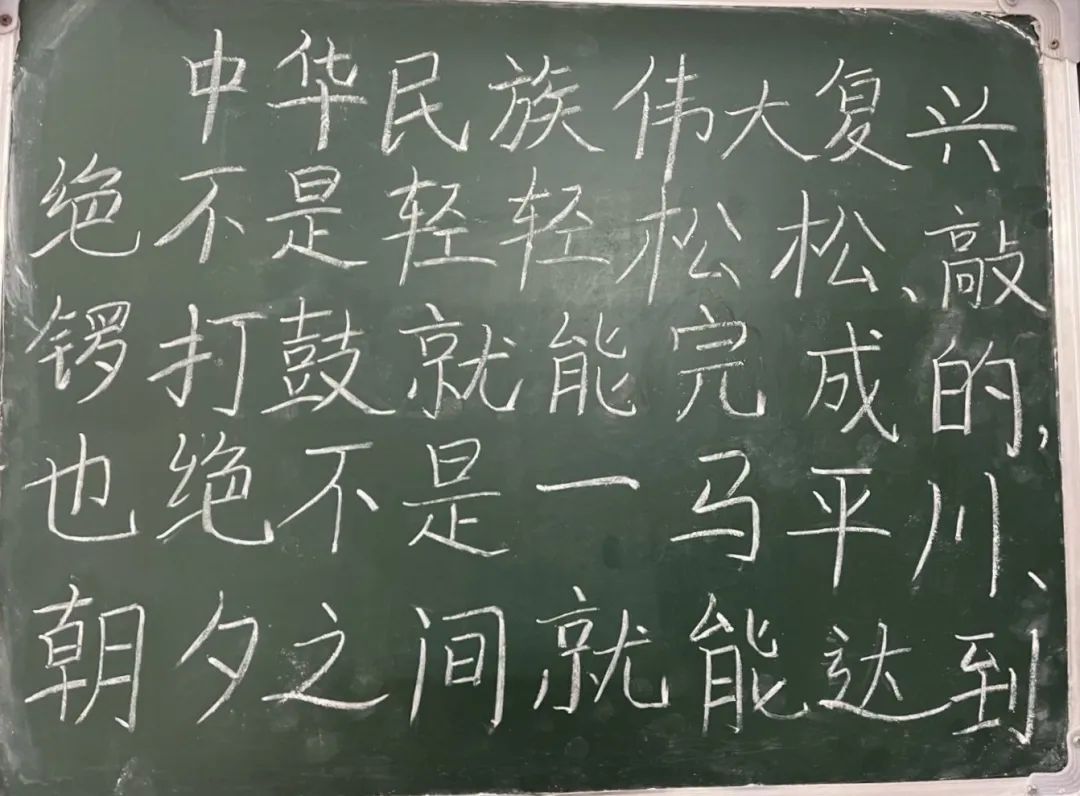 中华民族伟大复兴
绝不是轻轻松松、敲
锣打鼓就能完成的,
也绝不是一马平川、
朝夕之间就能达到